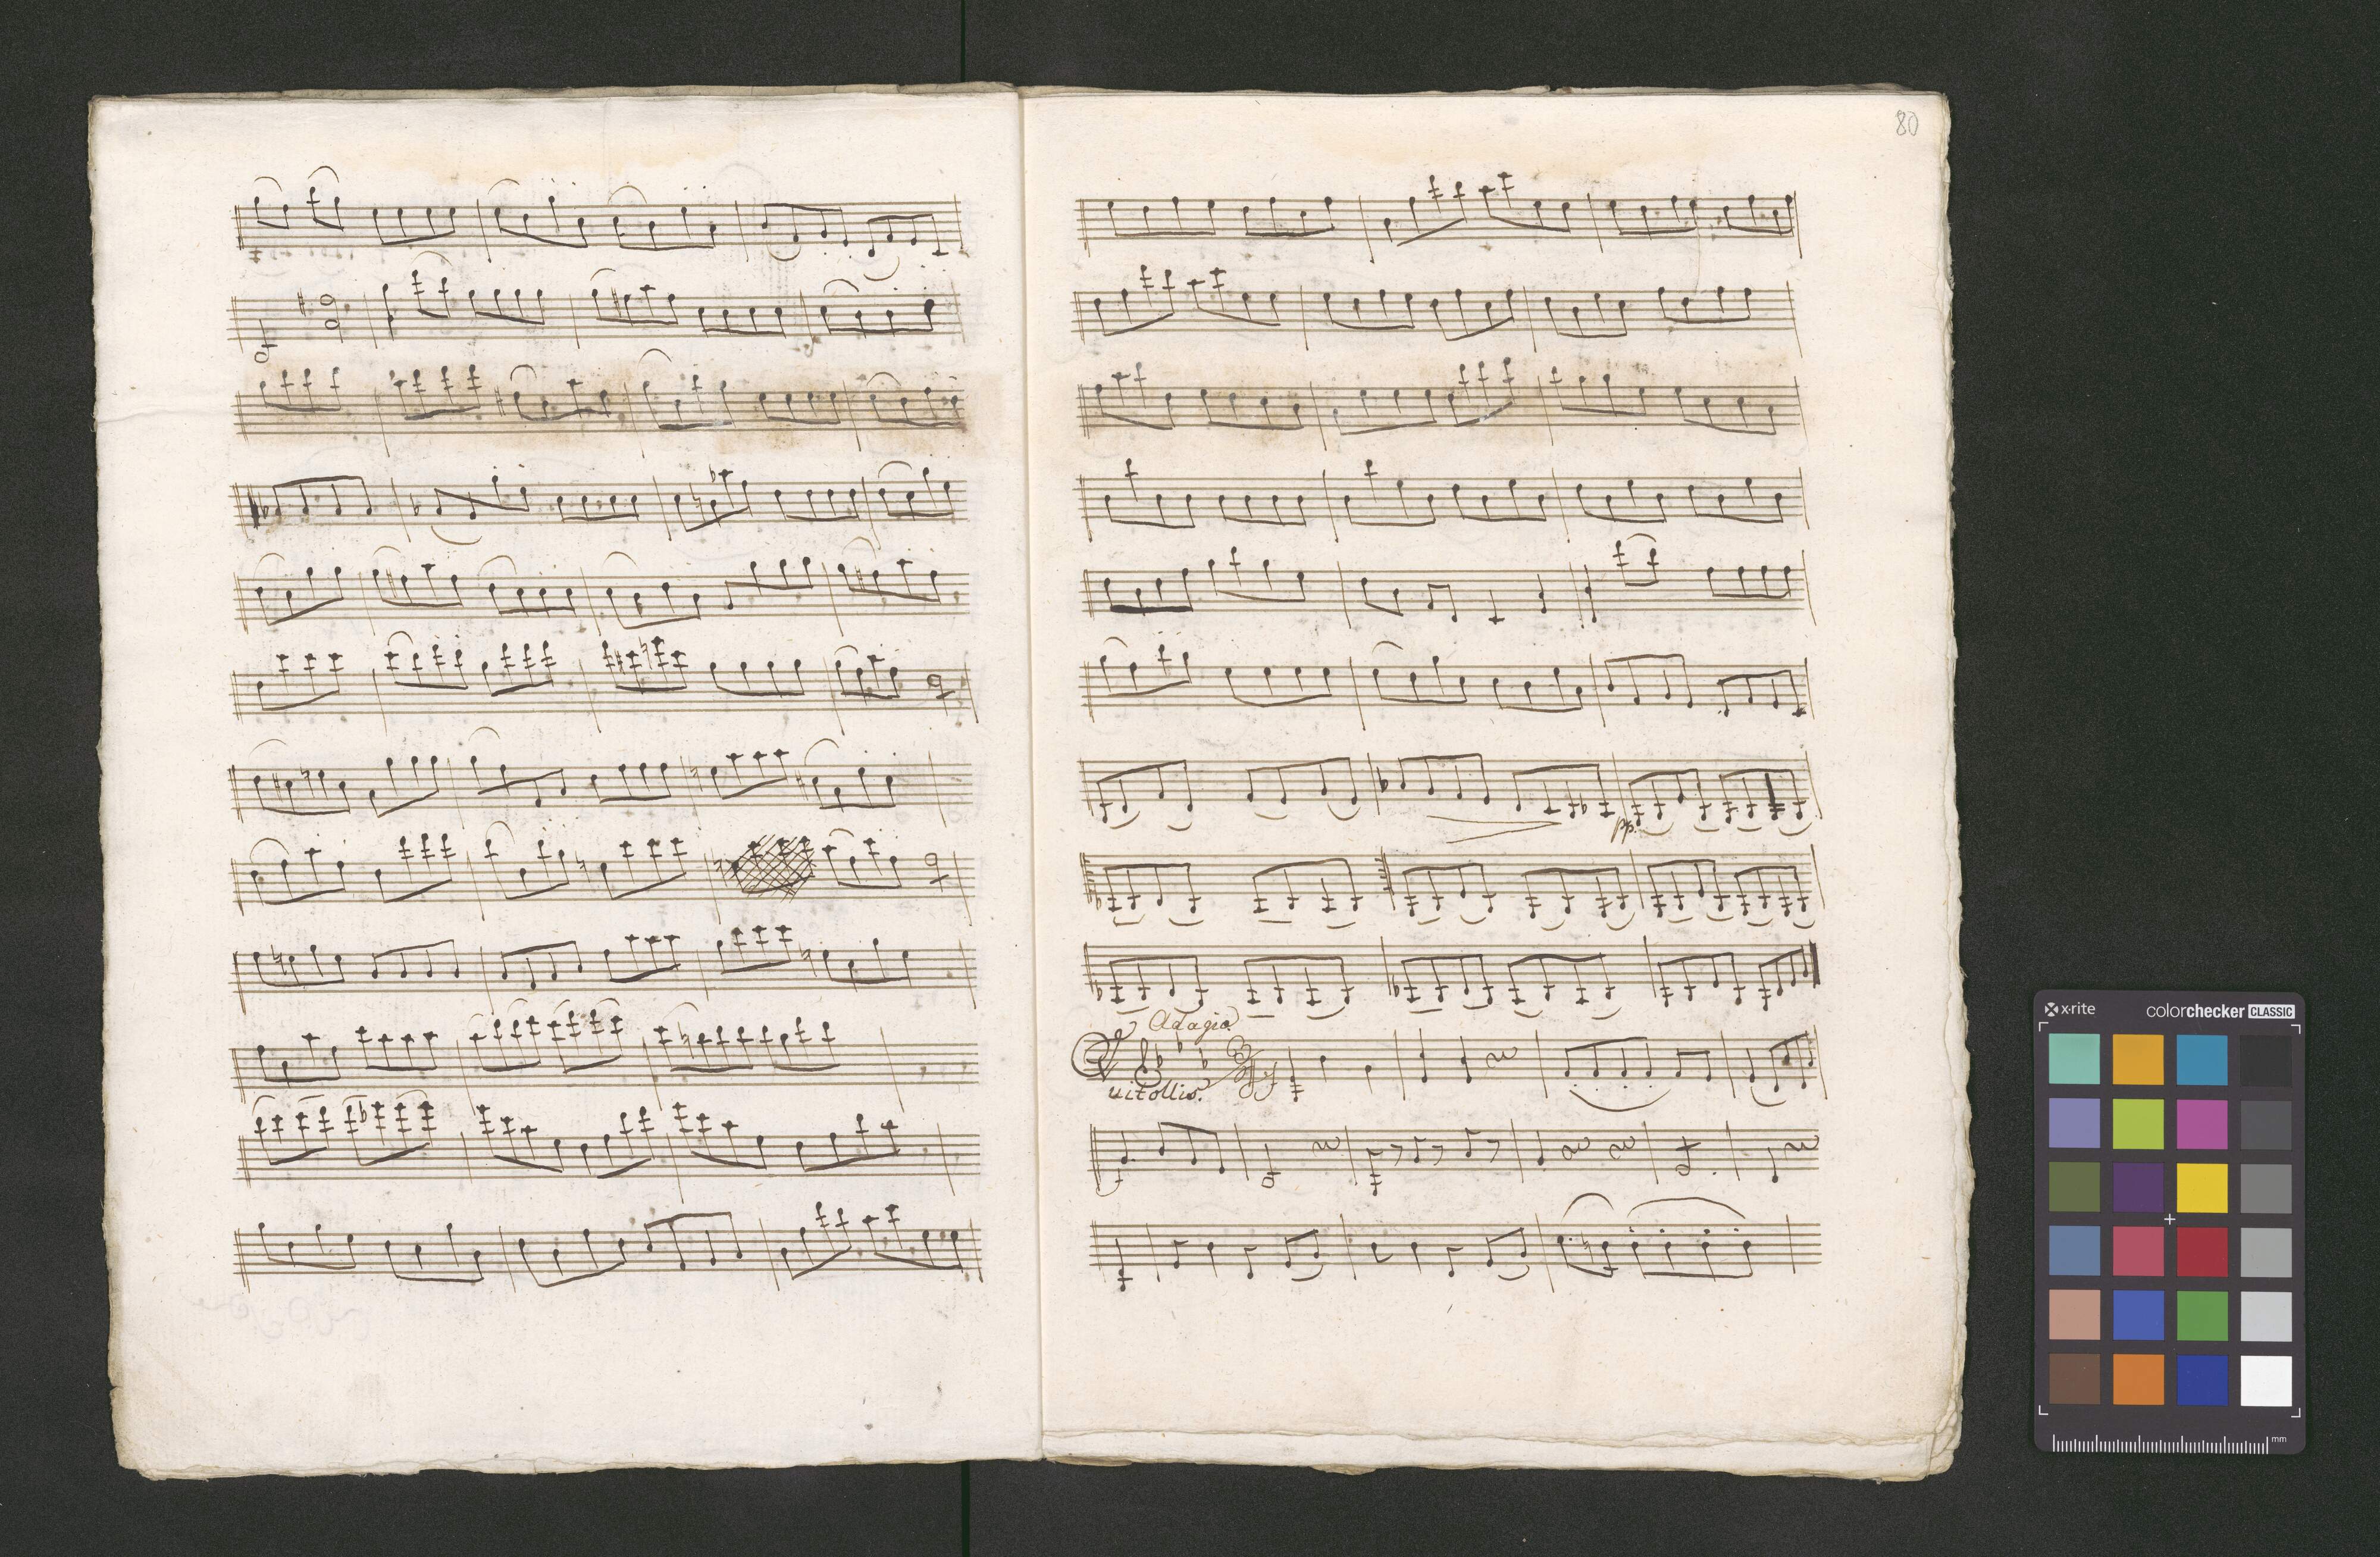 80
pp.
Adagio
Qui tollis.
x-rite
colorchecker CLASSIC
mm